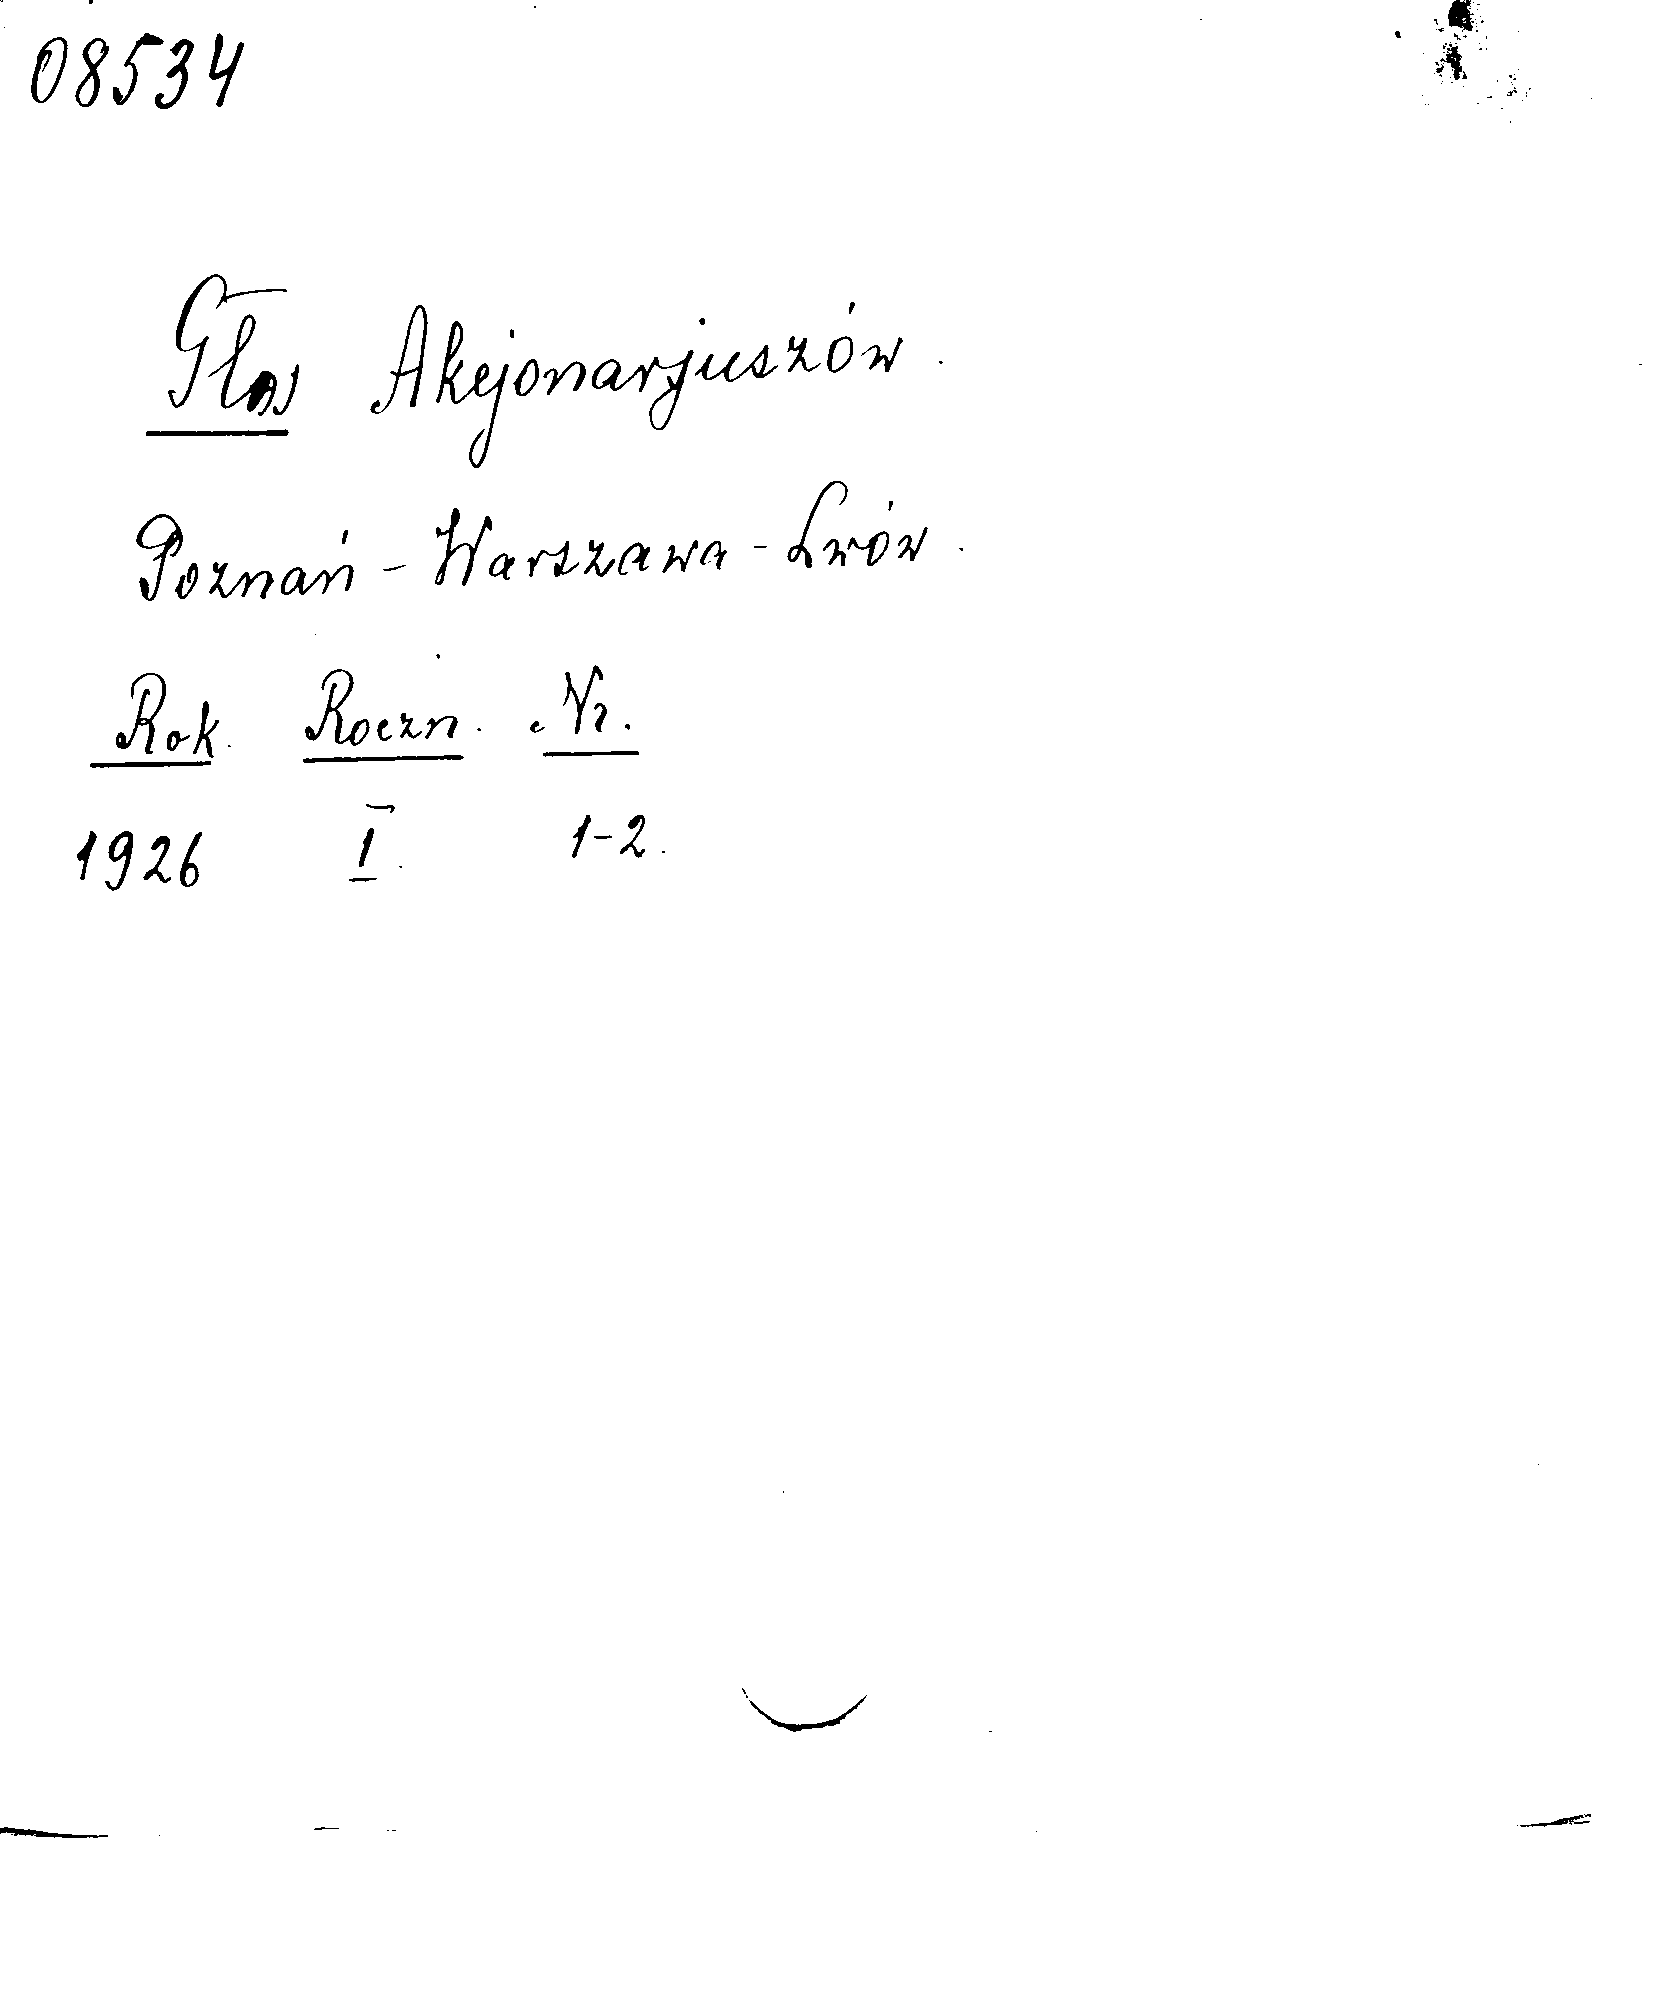 08534
Głos Akcjonarjuszów.
Poznań - Warszawa - Lwów.
Rok. Roczn. Nr.
1926 I. 1-2.